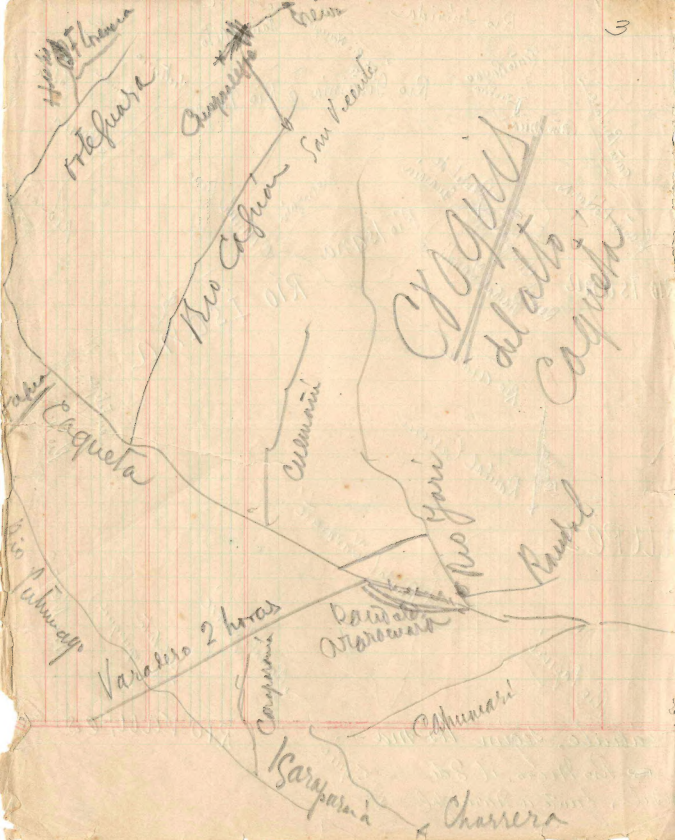 3
Neiva
Florencia
Orteguasa
Campoalegre
San Vicente
Rio Caguán
Croquis
del alto
Caquetá
Caqueta
Cuemañi
Rio Yari
Raudal
Rio Putumayo
Varadero 2 horas
Raudal
Araracuara
Caraparaná
Cahuinari
Igaraparaná
Chorrera